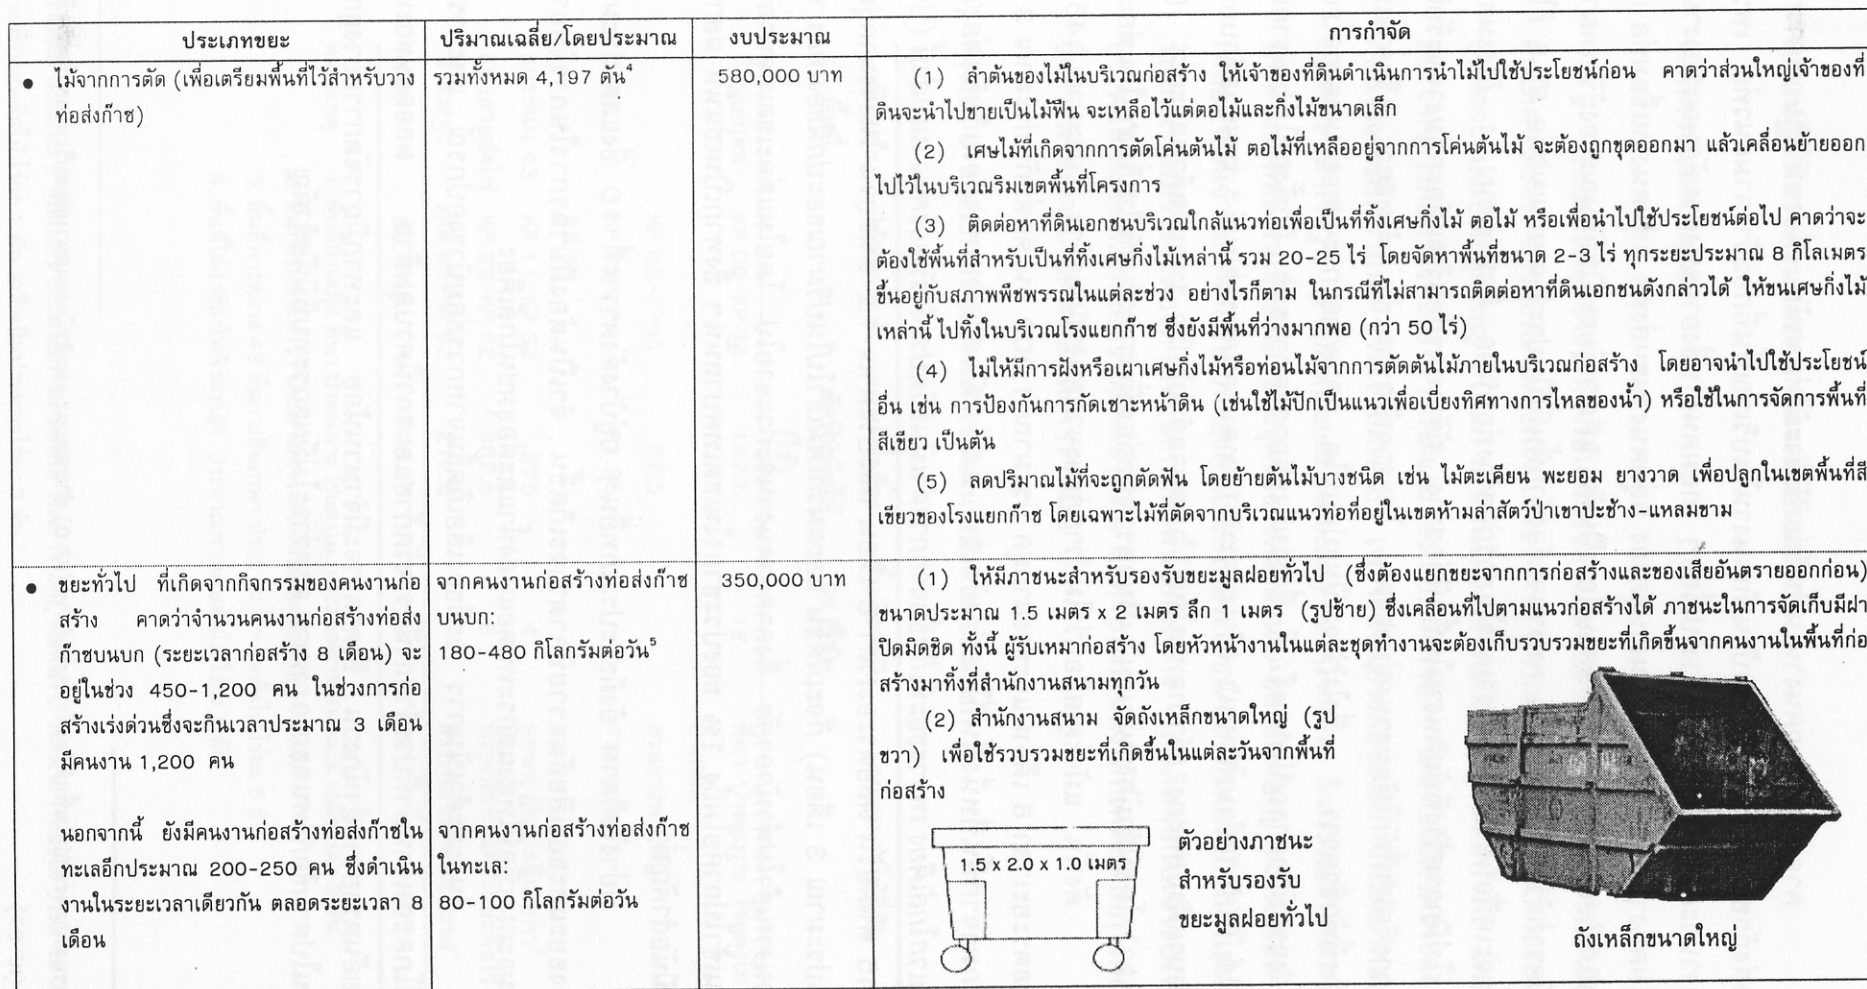 ประเภทขยะ
ปริมาณเฉลี่ย/โดยประมาณ
งบประมาณ
การกำจัด
● ไม้จากการตัด (เพื่อเตรียมพื้นที่ไว้สำหรับวาง
ท่อส่งก๊าช)
รวมทั้งหมด 4,197 ตัน⁴
580,000 บาท
(1) ลำต้นของไม้ในบริเวณก่อสร้าง ให้เจ้าของที่ดินดำเนินการนำไม้ไปใช้ประโยชน์ก่อน คาดว่าส่วนใหญ่เจ้าของที่
ดินจะนำไปขายเป็นไม้ฟืน จะเหลือไว้แต่ตอไม้และกิ่งไม้ขนาดเล็ก
(2) เศษไม้ที่เกิดจากการตัดโค่นต้นไม้ ตอไม้ที่เหลืออยู่จากการโค่นต้นไม้ จะต้องถูกขุดออกมา แล้วเคลื่อนย้ายออก
ไปไว้ในบริเวณริมเขตพื้นที่โครงการ
(3) ติดต่อหาที่ดินเอกชนบริเวณใกล้แนวท่อเพื่อเป็นที่ทิ้งเศษกิ่งไม้ ตอไม้ หรือเพื่อนำไปใช้ประโยชน์ต่อไป คาดว่าจะ
ต้องใช้พื้นที่สำหรับเป็นที่ทิ้งเศษกิ่งไม้เหล่านี้ รวม 20-25 ไร่ โดยจัดหาพื้นที่ขนาด 2-3 ไร่ ทุกระยะประมาณ 8 กิโลเมตร
ขึ้นอยู่กับสภาพพืชพรรณในแต่ละช่วง อย่างไรก็ตาม ในกรณีที่ไม่สามารถติดต่อหาที่ดินเอกชนดังกล่าวได้ ให้ขนเศษกิ่งไม้
เหล่านี้ ไปทิ้งในบริเวณโรงแยกก๊าซ ซึ่งยังมีพื้นที่ว่างมากพอ (กว่า 50 ไร่)
(4) ไม่ให้มีการฝังหรือเผาเศษกิ่งไม้หรือท่อนไม้จากการตัดต้นไม้ภายในบริเวณก่อสร้าง โดยอาจนำไปใช้ประโยชน์
อื่น เช่น การป้องกันการกัดเซาะหน้าดิน (เช่นใช้ไม้ปักเป็นแนวเพื่อเบี่ยงทิศทางการไหลของน้ำ) หรือใช้ในการจัดการพื้นที่
สีเขียว เป็นต้น
(5) ลดปริมาณไม้ที่จะถูกตัดฟัน โดยย้ายต้นไม้บางชนิด เช่น ไม้ตะเคียน พะยอม ยางวาด เพื่อปลูกในเขตพื้นที่สี
เขียวของโรงแยกก๊าซ โดยเฉพาะไม้ที่ตัดจากบริเวณแนวท่อที่อยู่ในเขตห้ามล่าสัตว์ป่าเขาปะช้าง-แหลมขาม
● ขยะทั่วไป ที่เกิดจากกิจกรรมของคนงานก่อ
สร้าง คาดว่าจำนวนคนงานก่อสร้างท่อส่ง
ก๊าซบนบก (ระยะเวลาก่อสร้าง 8 เดือน) จะ
อยู่ในช่วง 450-1,200 คน ในช่วงการก่อ
สร้างเร่งด่วนซึ่งจะกินเวลาประมาณ 3 เดือน
มีคนงาน 1,200 คน
นอกจากนี้ ยังมีคนงานก่อสร้างท่อส่งก๊าซใน
ทะเลอีกประมาณ 200-250 คน ซึ่งดำเนิน
งานในระยะเวลาเดียวกัน ตลอดระยะเวลา 8
เดือน
จากคนงานก่อสร้างท่อส่งก๊าช
บนบก:
180-480 กิโลกรัมต่อวัน⁵
จากคนงานก่อสร้างท่อส่งก๊าช
ในทะเล:
80-100 กิโลกรัมต่อวัน
350,000 บาท
(1) ให้มีภาชนะสำหรับรองรับขยะมูลฝอยทั่วไป (ซึ่งต้องแยกขยะจากการก่อสร้างและของเสียอันตรายออกก่อน)
ขนาดประมาณ 1.5 เมตร x 2 เมตร ลึก 1 เมตร (รูปซ้าย) ซึ่งเคลื่อนที่ไปตามแนวก่อสร้างได้ ภาชนะในการจัดเก็บมีฝา
ปิดมิดชิด ทั้งนี้ ผู้รับเหมาก่อสร้าง โดยหัวหน้างานในแต่ละชุดทำงานจะต้องเก็บรวบรวมขยะที่เกิดขึ้นจากคนงานในพื้นที่ก่อ
สร้างมาทิ้งที่สำนักงานสนามทุกวัน
(2) สำนักงานสนาม จัดถังเหล็กขนาดใหญ่ (รูป
ขวา) เพื่อใช้รวบรวมขยะที่เกิดขึ้นในแต่ละวันจากพื้นที่
ก่อสร้าง
1.5 x 2.0 x 1.0 เมตร
ตัวอย่างภาชนะ
สำหรับรองรับ
ขยะมูลฝอยทั่วไป
ถังเหล็กขนาดใหญ่